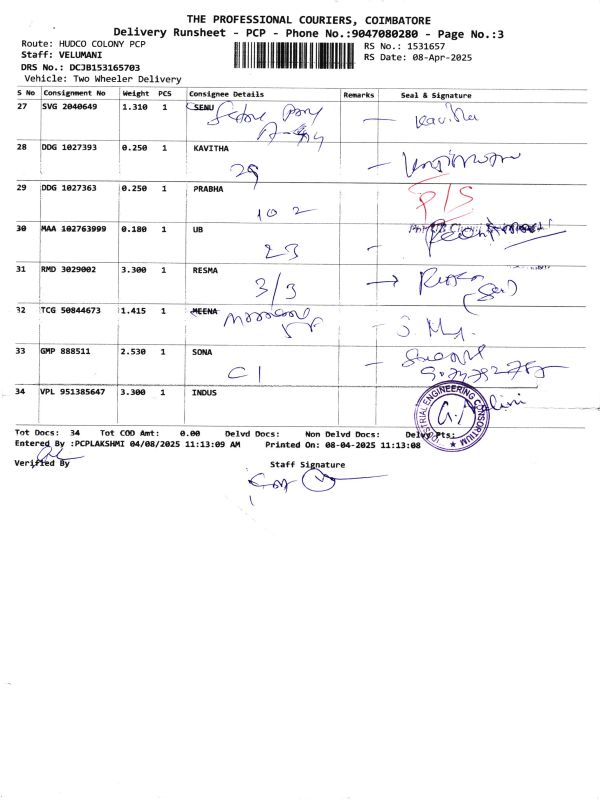 THE PROFESSIONAL COURIERS, COIMBATORE
Delivery Runsheet - PCP - Phone No.:9047080280 - Page No.:3
Route: HUDCO COLONY PCP
RS No.: 1531657
Staff: VELUMANI
RS Date: 08-Apr-2025
DRS No.: DCJB153165703
Vehicle: Two Wheeler Delivery
S No Consignment No Weight PCS Consignee Details Remarks Seal & Signature
27 SVG 2040649 1.310 1 SENU
28 DDG 1027393 0.250 1 KAVITHA
29
29 DDG 1027363 0.250 1 PRABHA
P/S
102
30 MAA 102763999 0.180 1 UB
23
31 RMD 3029002 3.300 1 RESMA
3/3
32 TCG 50844673 1.415 1 MEENA
33 GMP 888511 2.530 1 SONA
C1
34 VPL 951385647 3.300 1 INDUS
INDUSTRIAL ENGINEERING CONSORTIUM
Tot Docs: 34 Tot COD Amt: 0.00 Delvd Docs: Non Delvd Docs: Delvy Pts:
Entered By :PCPLAKSHMI 04/08/2025 11:13:09 AM Printed On: 08-04-2025 11:13:08
Verified By
Staff Signature